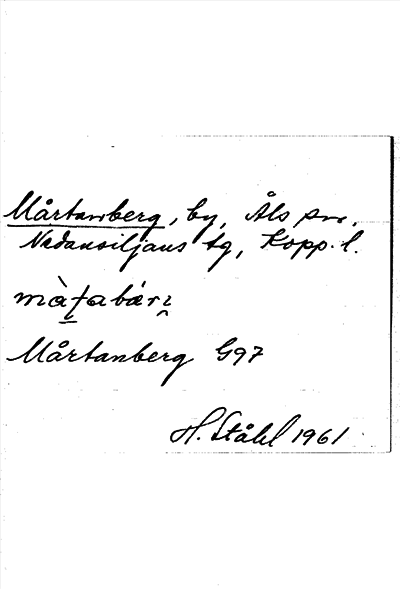 Mårtanberg, by, Åls sn,
Nedansiljans tg, Kopp. l.
Mårtanberg G97
H. Ståhl 1961